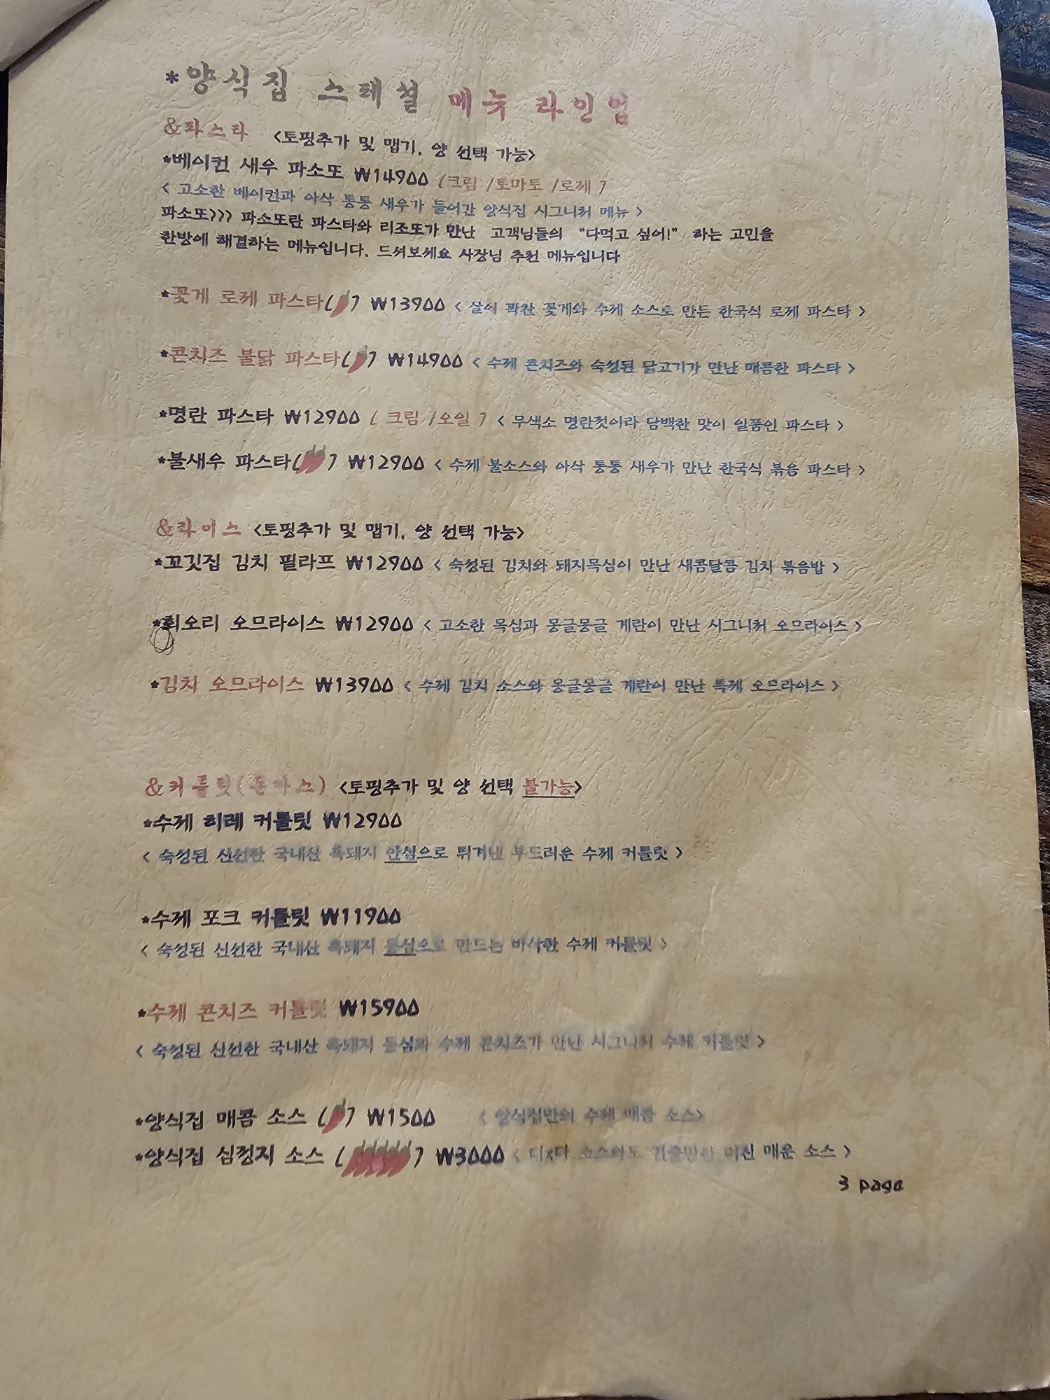 *양식집 스페셜 메뉴 라인업
&파스타 <토핑추가 및 맵기, 양 선택 가능>
*베이컨 새우 파소또 ₩14900 (크림 /토마토 /로제 )
< 고소한 베이컨과 아삭 통통 새우가 들어간 양식집 시그니처 메뉴 >
파소또>>> 파소또란 파스타와 리조또가 만난 고객님들의 "다먹고 싶어!" 하는 고민을
한방에 해결하는 메뉴입니다. 드셔보세요 사장님 추천 메뉴입니다
*꽃게 로제 파스타( ) ₩13900 < 살이 꽉찬 꽃게와 수제 소스로 만든 한국식 로제 파스타 >
*콘치즈 불닭 파스타( ) ₩14900 < 수제 콘치즈와 숙성된 닭고기가 만난 매콤한 파스타 >
*명란 파스타 ₩12900 ( 크림 /오일 ) < 무색소 명란젓이라 담백한 맛이 일품인 파스타 >
*불새우 파스타( ) ₩12900 < 수제 불소스와 아삭 통통 새우가 만난 한국식 볶음 파스타 >
&라이스 <토핑추가 및 맵기, 양 선택 가능>
*꼬깃집 김치 필라프 ₩12900 < 숙성된 김치와 돼지목심이 만난 새콤달콤 김치 볶음밥 >
*회오리 오므라이스 ₩12900 < 고소한 목심과 몽글몽글 계란이 만난 시그니처 오므라이스 >
*김치 오므라이스 ₩13900 < 수제 김치 소스와 몽글몽글 계란이 만난 특제 오므라이스 >
&커틀릿(돈까스) <토핑추가 및 양 선택 불가능>
*수제 히레 커틀릿 ₩12900
< 숙성된 신선한 국내산 흑돼지 안심으로 튀겨낸 부드러운 수제 커틀릿 >
*수제 포크 커틀릿 ₩11900
< 숙성된 신선한 국내산 흑돼지 등심으로 만드는 바삭한 수제 커틀릿 >
*수제 콘치즈 커틀릿 ₩15900
< 숙성된 신선한 국내산 흑돼지 등심과 수제 콘치즈가 만난 시그니처 수제 커틀릿 >
*양식집 매콤 소스 ( ) ₩1500 < 양식집만의 수제 매콤 소스>
*양식집 심정지 소스 ( ) ₩3000 < 디x다 소스와도 미친 매운 소스 >
3 page